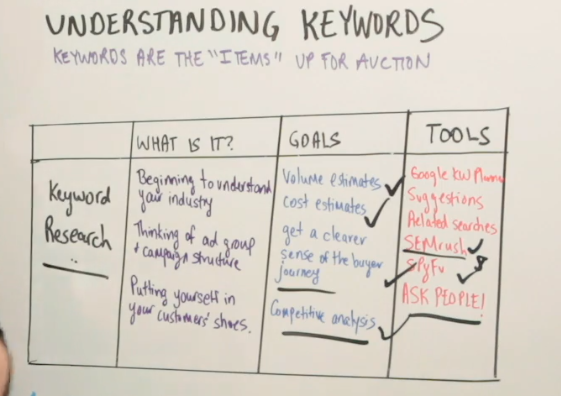 UNDERSTANDING KEYWORDS
KEYWORDS ARE THE "ITEMS" UP FOR AUCTION
WHAT IS IT?
GOALS
TOOLS
Keyword
Research
Beginning to understand
your industry
Thinking of ad group
+ campaign structure
Putting yourself in
your customers' shoes.
Volume estimates
cost estimates
get a clearer
sense of the buyer
journey
Competitive analysis
Google KW Planner
Suggestions
Related searches
SEMrush
SPyFu
ASK PEOPLE!